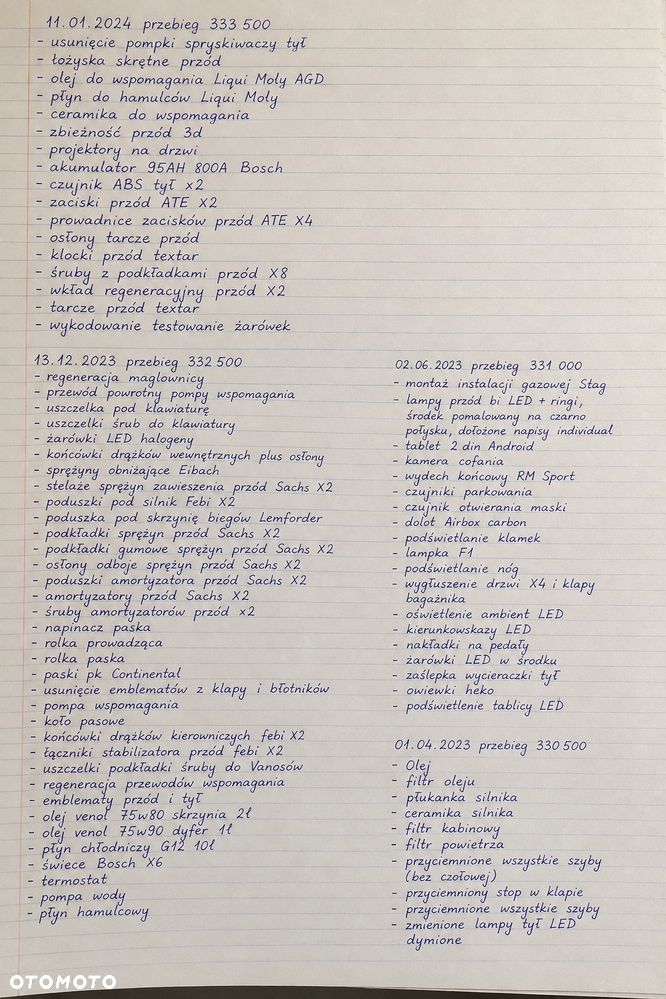 11.01.2024 przebieg 333 500
- usunięcie pompki spryskiwaczy tył
- łożyska skrętne przód
- olej do wspomagania Liqui Moly AGD
- płyn do hamulców Liqui Moly
- ceramika do wspomagania
- zbieżność przód 3d
- projektory na drzwi
- akumulator 95AH 800A Bosch
- czujnik ABS tył x2
- zaciski przód ATE X2
- prowadnice zacisków przód ATE X4
- osłony tarcze przód
- klocki przód textar
- śruby z podkładkami przód X8
- wkład regeneracyjny przód X2
- tarcze przód textar
- wykodowanie testowanie żarówek
13.12.2023 przebieg 332 500
- regeneracja maglownicy
- przewód powrotny pompy wspomagania
- uszczelka pod klawiaturę
- uszczelki śrub do klawiatury
- żarówki LED halogeny
- końcówki drążków wewnętrznych plus osłony
- sprężyny obniżające Eibach
- stelaże sprężyn zawieszenia przód Sachs X2
- poduszki pod silnik Febi X2
- poduszka pod skrzynię biegów Lemforder
- podkładki sprężyn przód Sachs X2
- podkładki gumowe sprężyn przód Sachs X2
- osłony odboje sprężyn przód Sachs X2
- poduszki amortyzatora przód Sachs X2
- amortyzatory przód Sachs X2
- śruby amortyzatorów przód x2
- napinacz paska
- rolka prowadząca
- rolka paska
- paski pk Continental
- usunięcie emblematów z klapy i błotników
- pompa wspomagania
- koło pasowe
- końcówki drążków kierowniczych febi X2
- łączniki stabilizatora przód febi X2
- uszczelki podkładki śruby do Vanosów
- regeneracja przewodów wspomagania
- emblematy przód i tył
- olej venol 75w80 skrzynia 2l
- olej venol 75w90 dyfer 1l
- płyn chłodniczy G12 10l
- świece Bosch X6
- termostat
- pompa wody
- płyn hamulcowy
02.06.2023 przebieg 331 000
- montaż instalacji gazowej Stag
- lampy przód bi LED + ringi,
środek pomalowany na czarno
połysku, dołożone napisy individual
- tablet 2 din Android
- kamera cofania
- wydech końcowy RM Sport
- czujniki parkowania
- czujnik otwierania maski
- dolot Airbox carbon
- podświetlanie klamek
- lampka F1
- podświetlanie nóg
- wygłuszenie drzwi X4 i klapy
bagażnika
- oświetlenie ambient LED
- kierunkowskazy LED
- nakładki na pedały
- żarówki LED w środku
- zaślepka wycieraczki tył
- owiewki heko
- podświetlenie tablicy LED
01.04.2023 przebieg 330 500
- Olej
- filtr oleju
- płukanka silnika
- ceramika silnika
- filtr kabinowy
- filtr powietrza
- przyciemnione wszystkie szyby
(bez czołowej)
- przyciemniony stop w klapie
- przyciemnione wszystkie szyby
- zmienione lampy tył LED
dymione
OTOMOTO